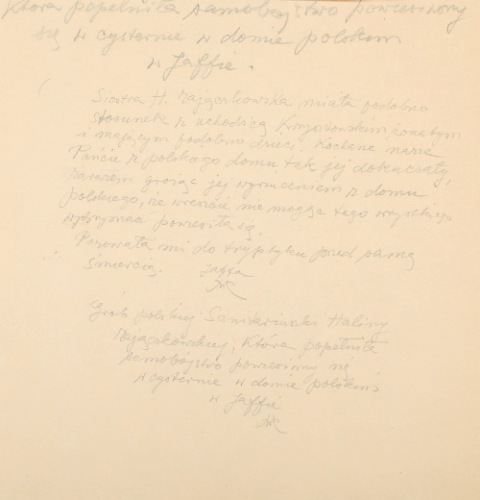 która popełniła samobójstwo powiesiwszy
się w cysternie w domie polskim
w Jaffie.
Siostra H. Zajączkowska miała podobno
stosunek z uchodźcą Krzyżtowskim, żonatym
i mającym podobno dzieci. Kochane nasze
Panie z polskiego domu tak jej dokuczały,
zarazem grożąc jej wyrzuceniem z domu
polskiego, że wreszcie nie mogąc tego wszystkiego
wytrzymać powiesiła się.
Pozowała mi do tryptyku przed samą
śmiercią. Jaffa
Grób polskiej Sanitariuszki Haliny
Zajączkowskiej, która popełniła
samobójstwo powiesiwszy się
w cysternie w domie polskim
w Jaffie